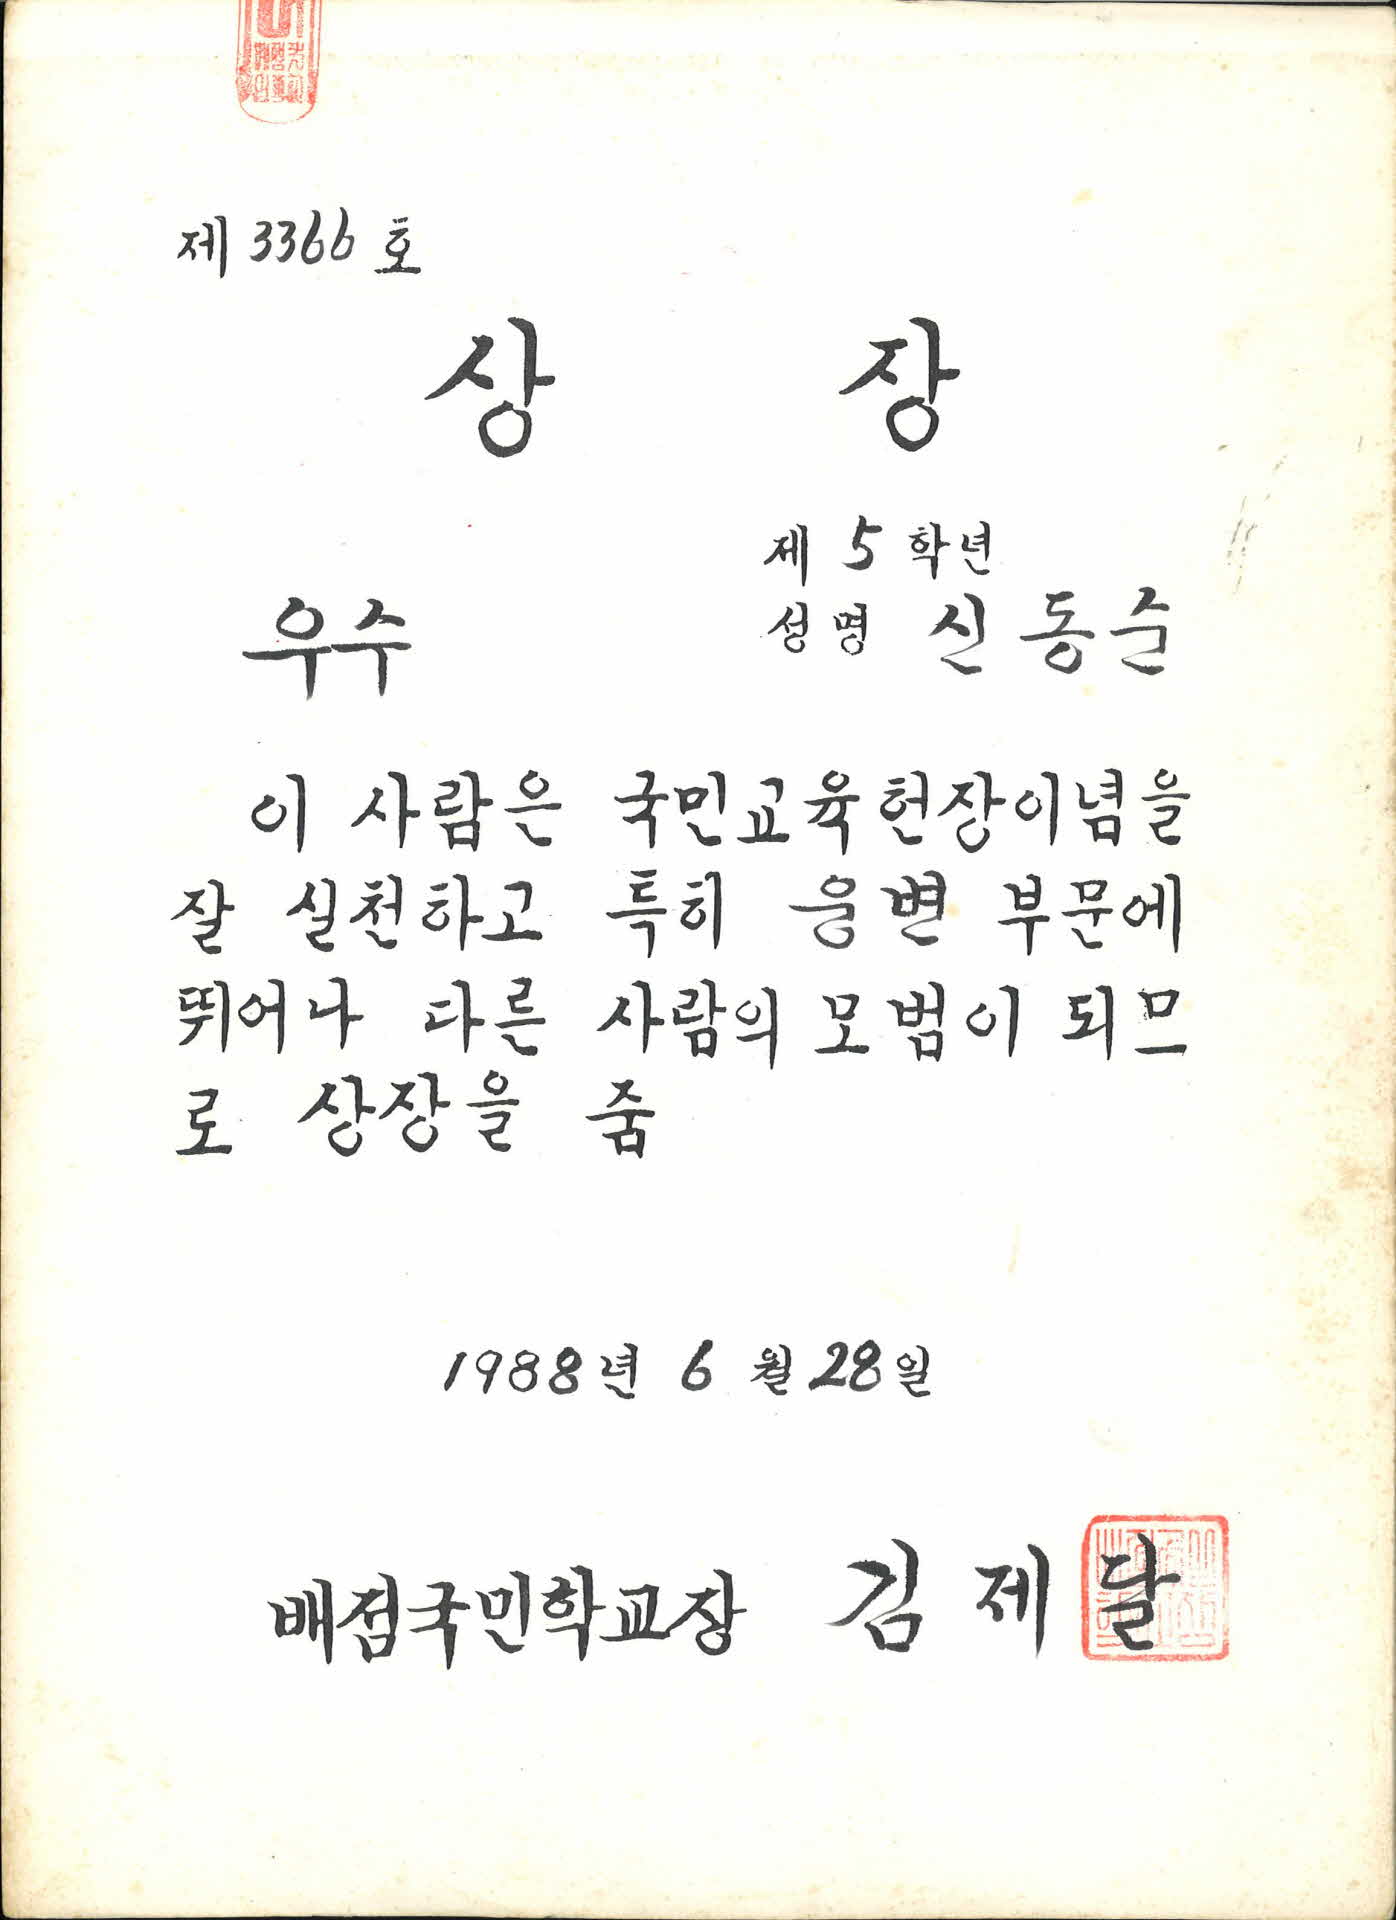 제 3366 호
상 장
제 5 학년
우수
성명 신동순
이 사람은 국민교육헌장이념을
잘 실천하고 특히 웅변 부문에
뛰어나 다른 사람의 모범이 되므
로 상장을 줌
1988년 6월 28일
배점국민학교장 김제달